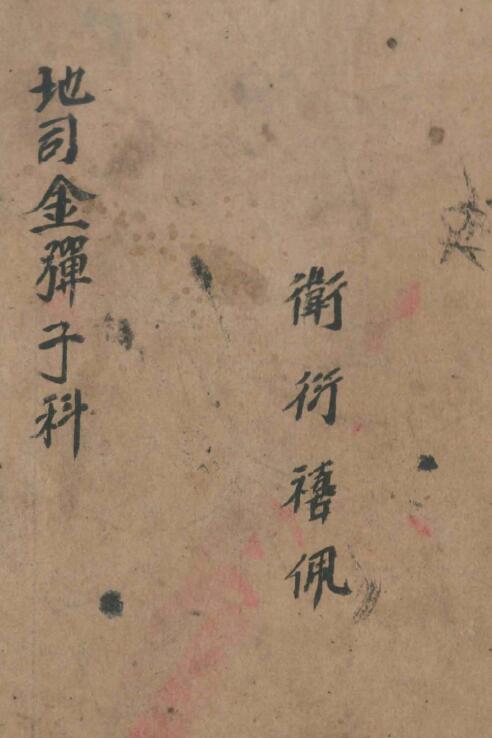 衛衍禧佩
地司金彈子科